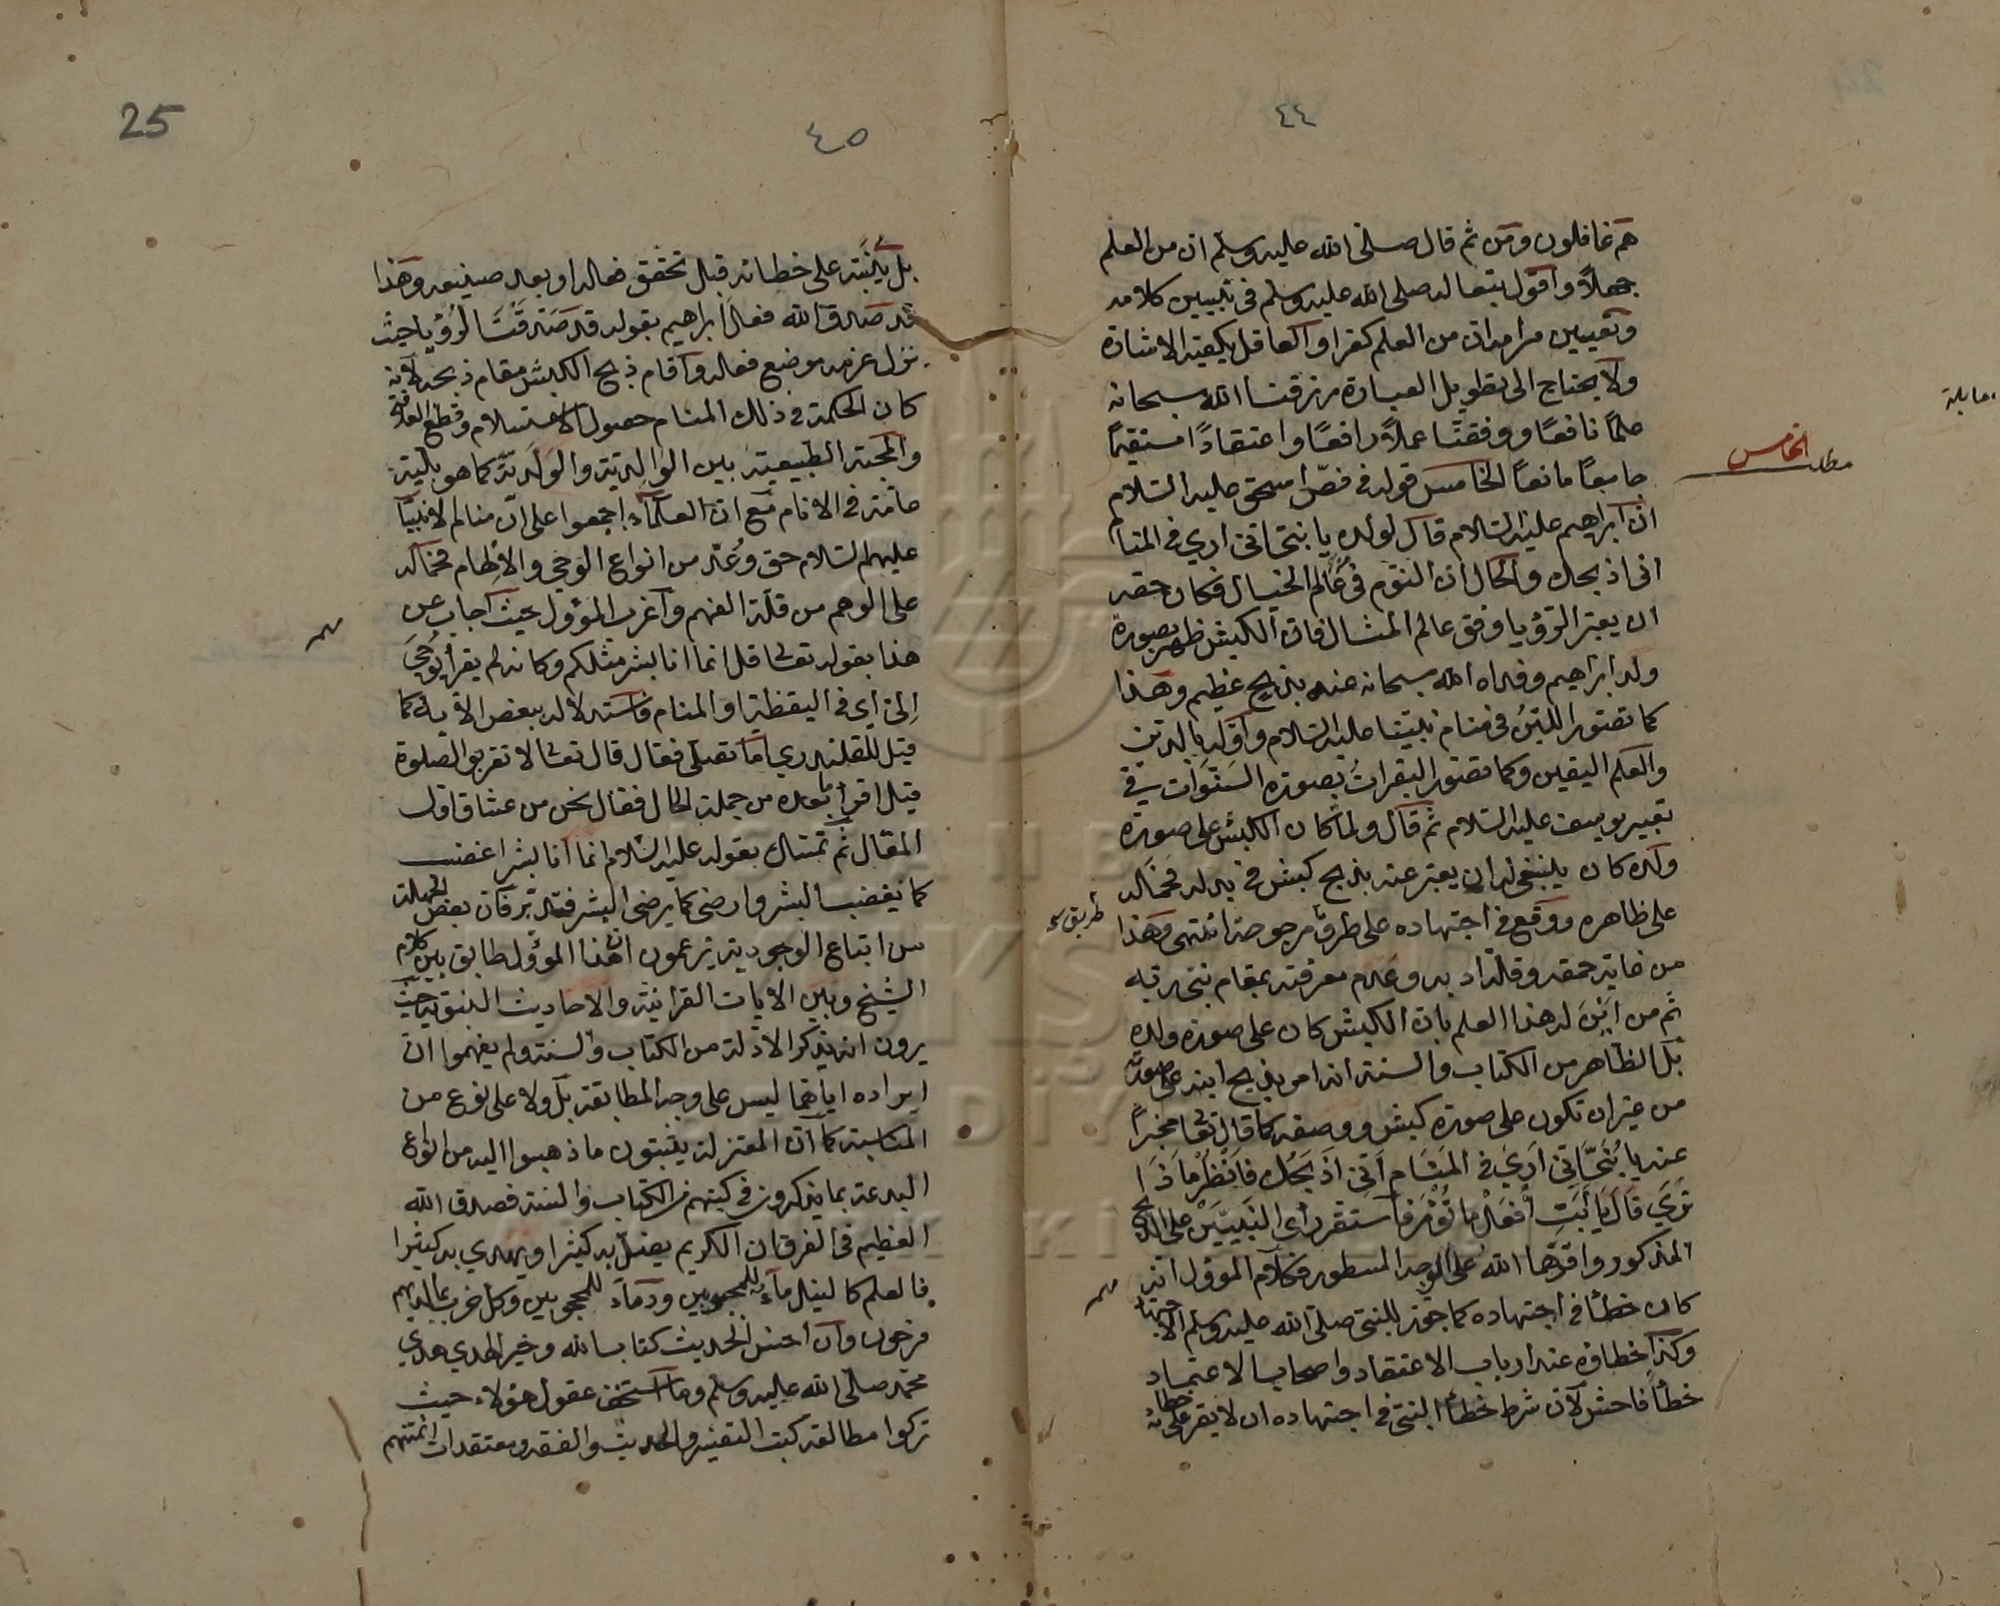 ٤٤
هم غافلون ومن ثم قال صلى الله عليه وسلم ان من العلم
جهلاً واقول بتعاله صلى الله عليه وسلم في تبيين كلامه
وتعيين مرامه ان من العلم كفرا والعاقل يكفيه الاشارة
ولا يحتاج الى تطويل العبارة رزقنا الله سبحانه
علماً نافعاً ووفقنا عملاً رافعاً واعتقادًا مستقيماً
جامعاً مانعاً الخامس قوله في فصّ اسحق عليه السلام
مطلب الخامس
ان ابراهيم عليه السلام قال لولده يا بني اني ارى في المنام
اني اذبحك والحال ان النوم في عالم الخيال فكان حقه
ان يعبر الرؤيا وفق عالم المثال فان الكبش ظهر بصورة
ولد ابراهيم وفداه الله سبحانه عنه بذبح عظيم وهذا
كما تصور اللبن في منام نبينا عليه السلام واوّله بالدين
والعلم اليقين وكما تصور البقرات بصورة السنوات في
تعبير يوسف عليه السلام ثم قال ولما كان الكبش على صورة
ولده كان ينبغي له ان يعبر عنه بذبح كبش في بدله فحمله
على ظاهره ووقع في اجتهاده على طرق مرجوحة انتهى وهذا
طريق
من غاية حمقه وقلة ادبه وعدم معرفته بمقام نبي ربه
ثم من اين له هذا العلم بان الكبش كان على صورة ولده
بل الظاهر من الكتاب والسنة انه امر بذبح ابنه على صورته
من غير ان تكون على صورة كبش ووصفه كما قال تعا مخبراً
عنه يا بُنَيَّ اِنّي اَرَى في المَنَامِ اَنّي اَذْبَحُكَ فَانْظُرْ مَاذَا
تَرَى قَالَ يَا أَبَتِ افْعَلْ مَا تُؤْمَرُ فاستقر راى النبيين على الذبح
المذكور واقرهما الله على الوجه المسطور فكلام المؤول انه
كان خطئًا في اجتهاده كما جوز للنبي صلى الله عليه وسلم الاجتهاد
وكذا خطاؤه عند ارباب الاعتقاد واصحاب الاعتماد
خطأ فاحش لان شرط خطأ النبي في اجتهاده ان لا يقر على خطائه
٤٥
25
بل يُنَبَّه على خطائه قبل تحقق فعاله او بعد صنيعه وهذا
قد صدق الله فعل ابراهيم بقوله قد صَدَّقْتَ الرُّؤْيا حيث
نزل عزمه موضع فعاله واقام ذبح الكبش مقام ذبحه لانه
كان الحكمة في ذلك المنام حصول الاستسلام وقطع العلاقة
والمحبة الطبيعية بين الوالدية والولدية كما هو بلية
عامة في الانام مع ان العلماء اجمعوا على ان منام الانبياء
عليهم السلام حق وعُدّ من انواع الوحي والالهام فحمله
على الوهم من قلة الفهم واغرب المؤول حيث اجاب عن
هذا بقوله تعالى قل انما انا بشر مثلكم وكانه لم يقرأ يُوحَى
اِلىّ اي في اليقظة او المنام واستدلاله ببعض الآية كما
قيل للقلندري اما تصلي فقال قال تعالى لا تقربوا الصلوة
قيل اقرأ ما بعده من جملة الحال فقال نحن من عشاق اول
المقال ثم تمسك بقوله عليه السلام انما انا بشر اغضب
كما يغضب البشر وارضى كما يرضى البشر فتدبر فان بعض الجهلة
من اتباع الوجودية يزعمون ان هذا المؤول طابق بين كلام
الشيخ وبين الايات القرانية والاحاديث النبوية حيث
يرون انه يذكر الادلة من الكتاب والسنة ولم يفهموا ان
ايراده اياهما ليس على وجه المطابقة بل ولا على نوع من
المناسبة كما ان المعتزلة يثبتون ما ذهبوا اليه من انواع
البدعة بما يذكرون في كتبهم من الكتاب والسنة فصدق الله
العظيم في الفرقان الكريم يضل به كثيرا ويهدي به كثيرا
فالعلم كالنيل ماء للمحبوبين ودماء للمحجوبين وكل حزب بما لديهم
فرحون وان احسن الحديث كتاب الله وخير الهدي هدي
محمد صلى الله عليه وسلم وما استخف عقول هؤلاء حيث
تركوا مطالعة كتب التفسير والحديث والفقه ومعتقدات ائمتهم